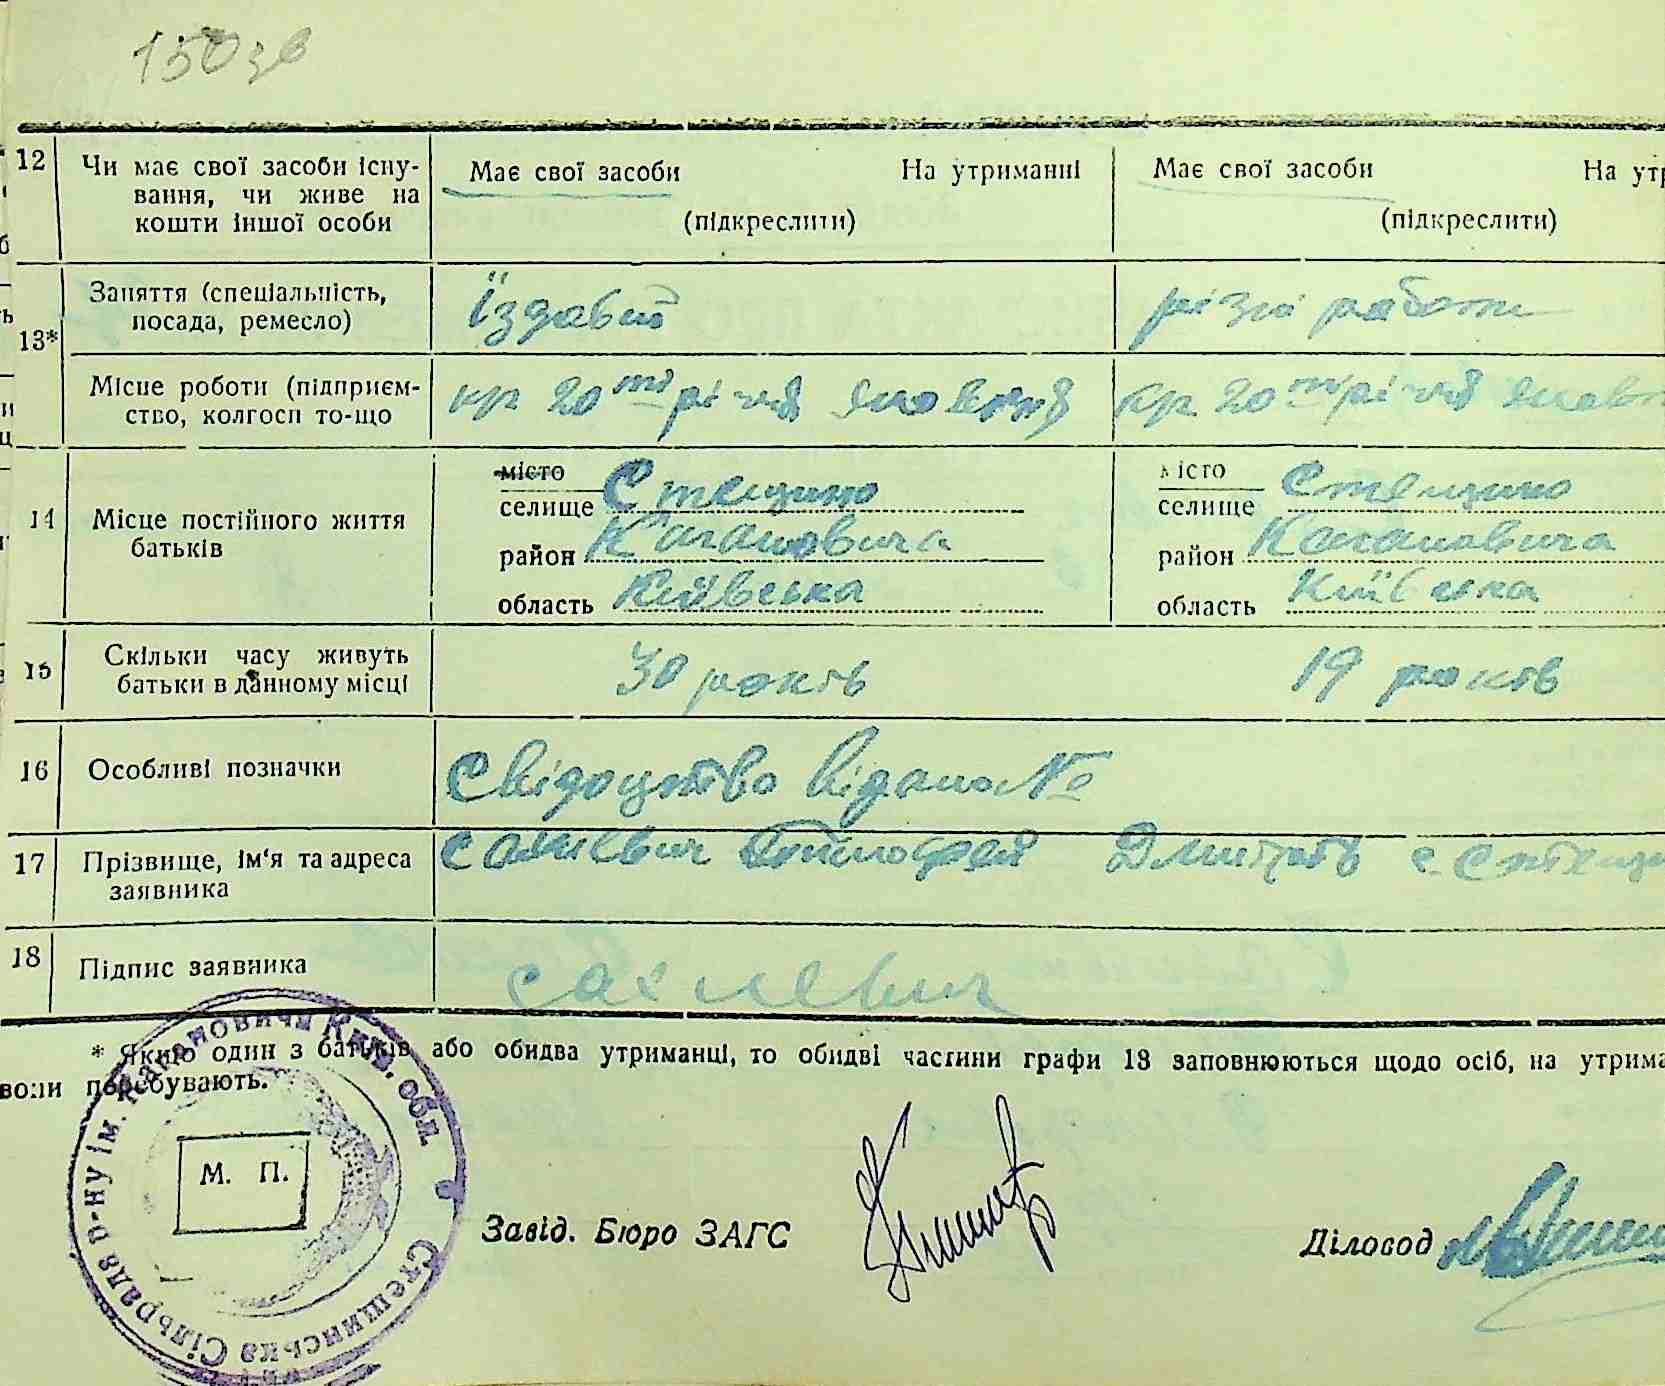 150 зв
12 Чи має свої засоби існу-
вання, чи живе на
кошти іншої особи
Має свої засоби На утриманні
(підкреслити)
Має свої засоби На утр
(підкреслити)
13* Заняття (спеціальність,
посада, ремесло)
Їздавий
різні работи
Місце роботи (підприєм-
ство, колгосп то-що
кр 20 річчя
кр 20 річчя
14 Місце постійного життя
батьків
місто
селище Стещино
район Кагановича
область Київська
місто
селище Стещино
район Кагановича
область Київська
15 Скільки часу живуть
батьки в данному місці
30 років
19 років
16 Особливі позначки
Свідоцтво відано №
17 Прізвище, ім'я та адреса
заявника
Дмитрів с.
18 Підпис заявника
* Якщо один з батьків або обидва утриманці, то обидві частини графи 13 заповнюються щодо осіб, на утрима
вони перебувають.
М. П.
Стещинська Сільрада р-ну ім. Кагановича Київ. обл.
Завід. Бюро ЗАГС
Діловод